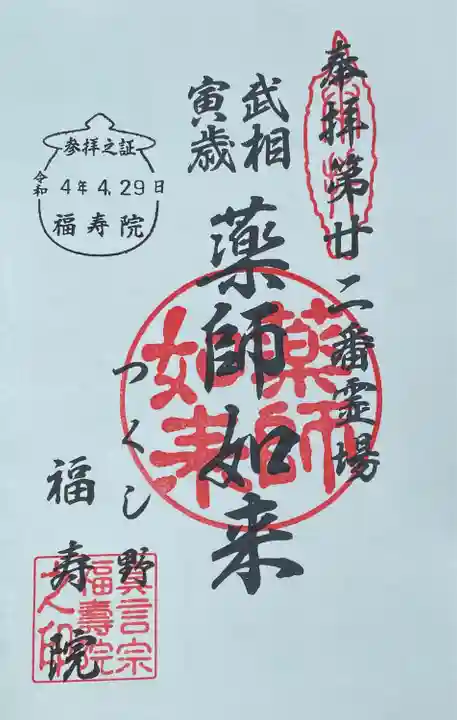 奉拝第廿二番霊場
武相
寅歳
薬師如来
薬師
如来
つくし野
福寿院
参拝之証
令和4年4.29日
福寿院
真言宗
福壽院
之印